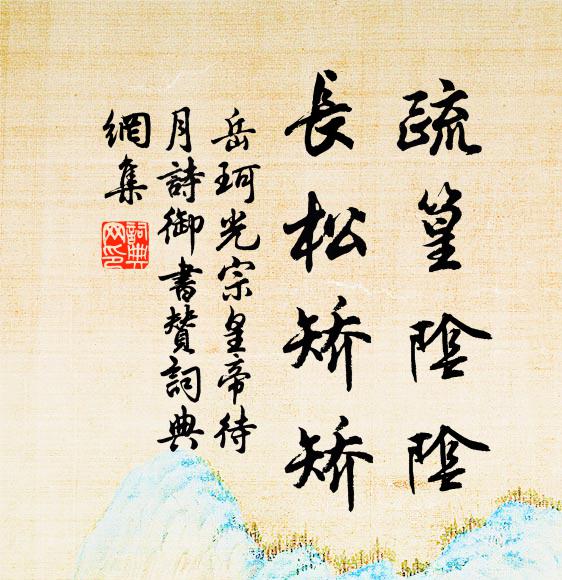 疏篁陰陰
長松矯矯
岳珂光宗皇帝待
月詩御書賛詞典
網集
詞典
网印